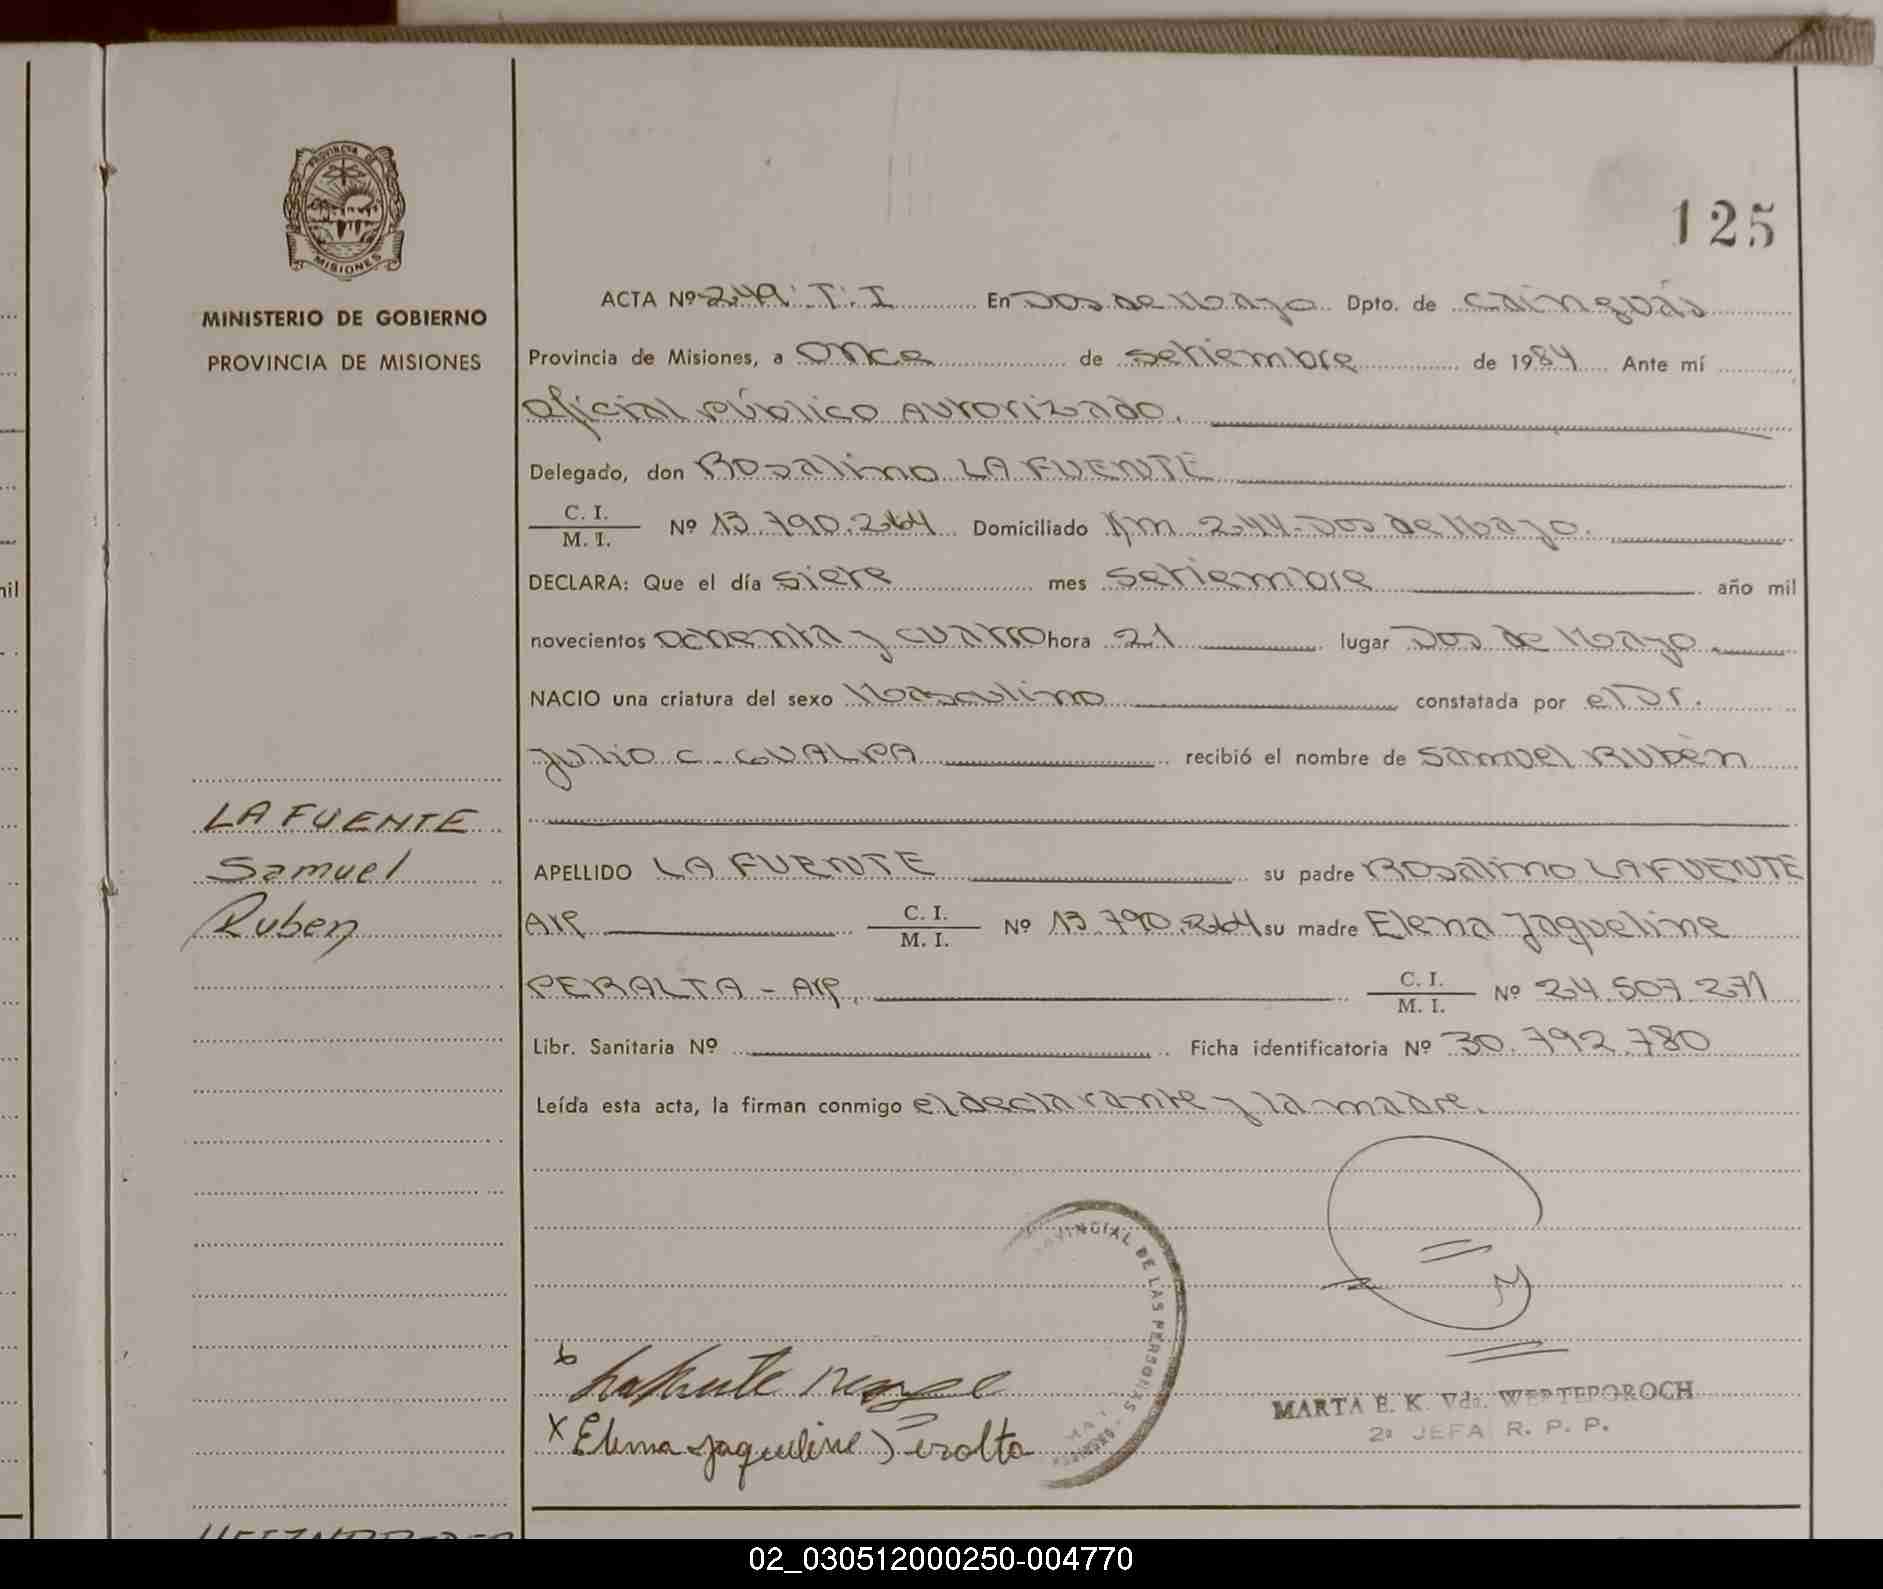 PROVINCIA DE
MISIONES
MINISTERIO DE GOBIERNO
PROVINCIA DE MISIONES
125
ACTA Nº 249. T. I En Dos de Mayo Dpto. de Cainguás
Provincia de Misiones, a once de setiembre de 1984 Ante mí
oficial público autorizado.
Delegado, don Rosalino LA FUENTE
C. I.
M. I. Nº 13.790.264 Domiciliado Km 244-Dos de Mayo.
DECLARA: Que el día siete mes setiembre año mil
novecientos ochenta y cuatro hora 21 lugar Dos de Mayo
NACIO una criatura del sexo Masculino constatada por el Dr.
Julio C. GUALPA recibió el nombre de Samuel Rubén
LA FUENTE
Samuel
Ruben
APELLIDO LA FUENTE su padre Rosalino LA FUENTE
Arg C. I.
M. I. Nº 13.790.264 su madre Elena Jaqueline
PERALTA - Arg. C. I.
M. I. Nº 24.507.271
Libr. Sanitaria Nº Ficha identificatoria Nº 30.792.780
Leída esta acta, la firman conmigo el declarante y la madre.
PROVINCIAL DE LAS PERSONAS
x Elena Jaqueline Peralta
MARTA E. K. Vda. WERTEPOROCH
2ª JEFA R. P. P.
mil
02_030512000250-004770